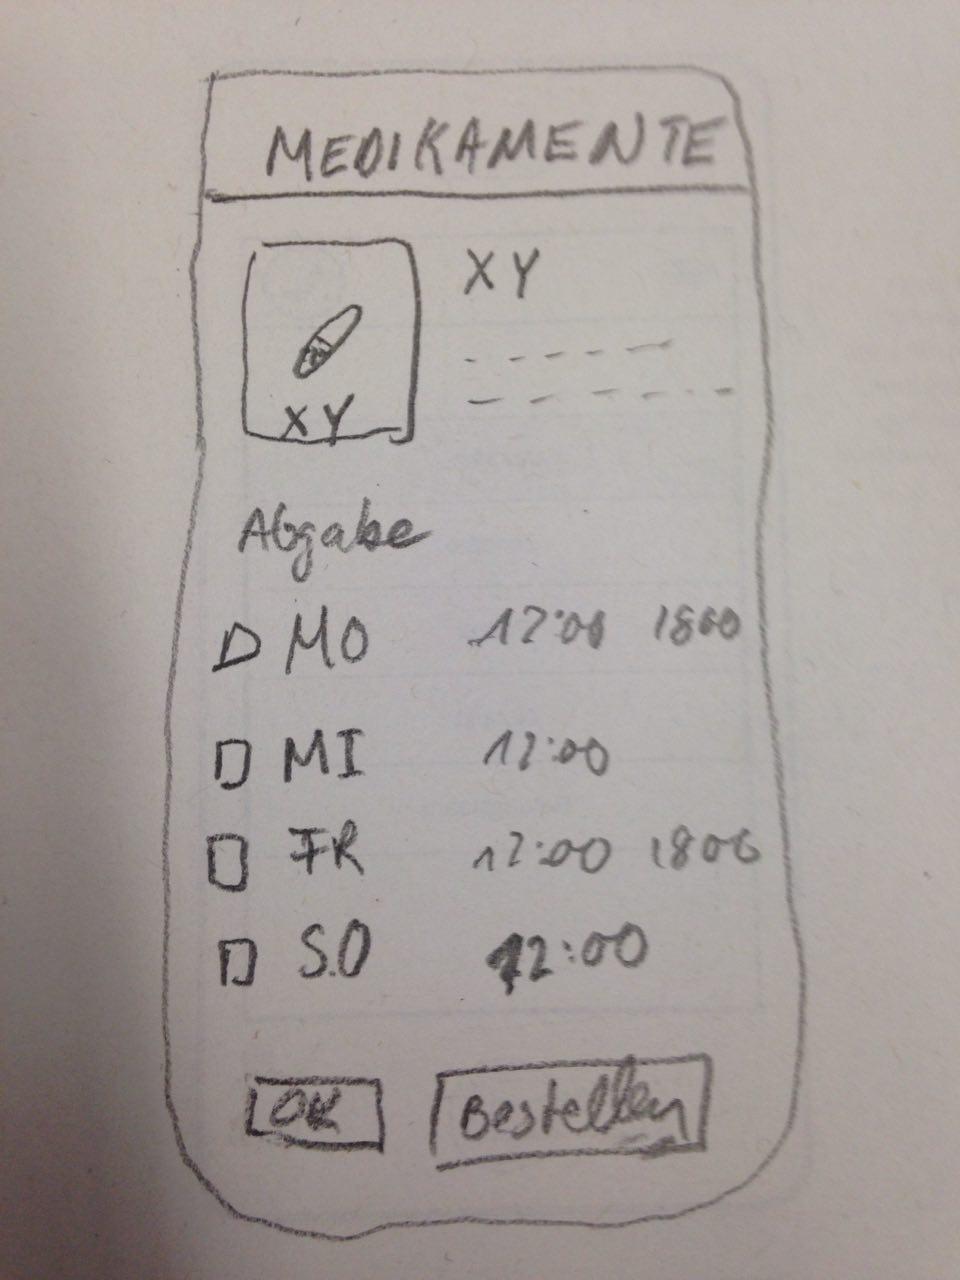 MEDIKAMENTE
XY
XY
Abgabe
MO 12:00 1800
MI 12:00
FR 12:00 1800
S.O 12:00
OK Bestellen